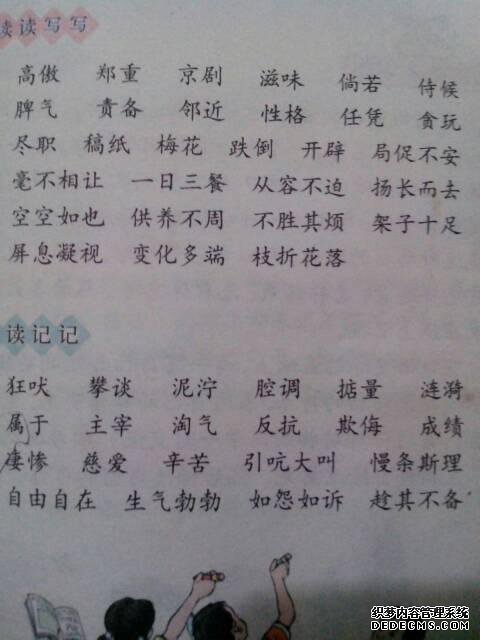 读读写写
高傲 郑重 京剧 滋味 倘若 侍候
脾气 责备 邻近 性格 任凭 贪玩
尽职 稿纸 梅花 跌倒 开辟 局促不安
毫不相让 一日三餐 从容不迫 扬长而去
空空如也 供养不周 不胜其烦 架子十足
屏息凝视 变化多端 枝折花落
读记记
狂吠 攀谈 泥泞 腔调 掂量 涟漪
属于 主宰 淘气 反抗 欺侮 成绩
凄惨 慈爱 辛苦 引吭大叫 慢条斯理
自由自在 生气勃勃 如怨如诉 趁其不备
织梦内容管理系统
DEDECMS.COM